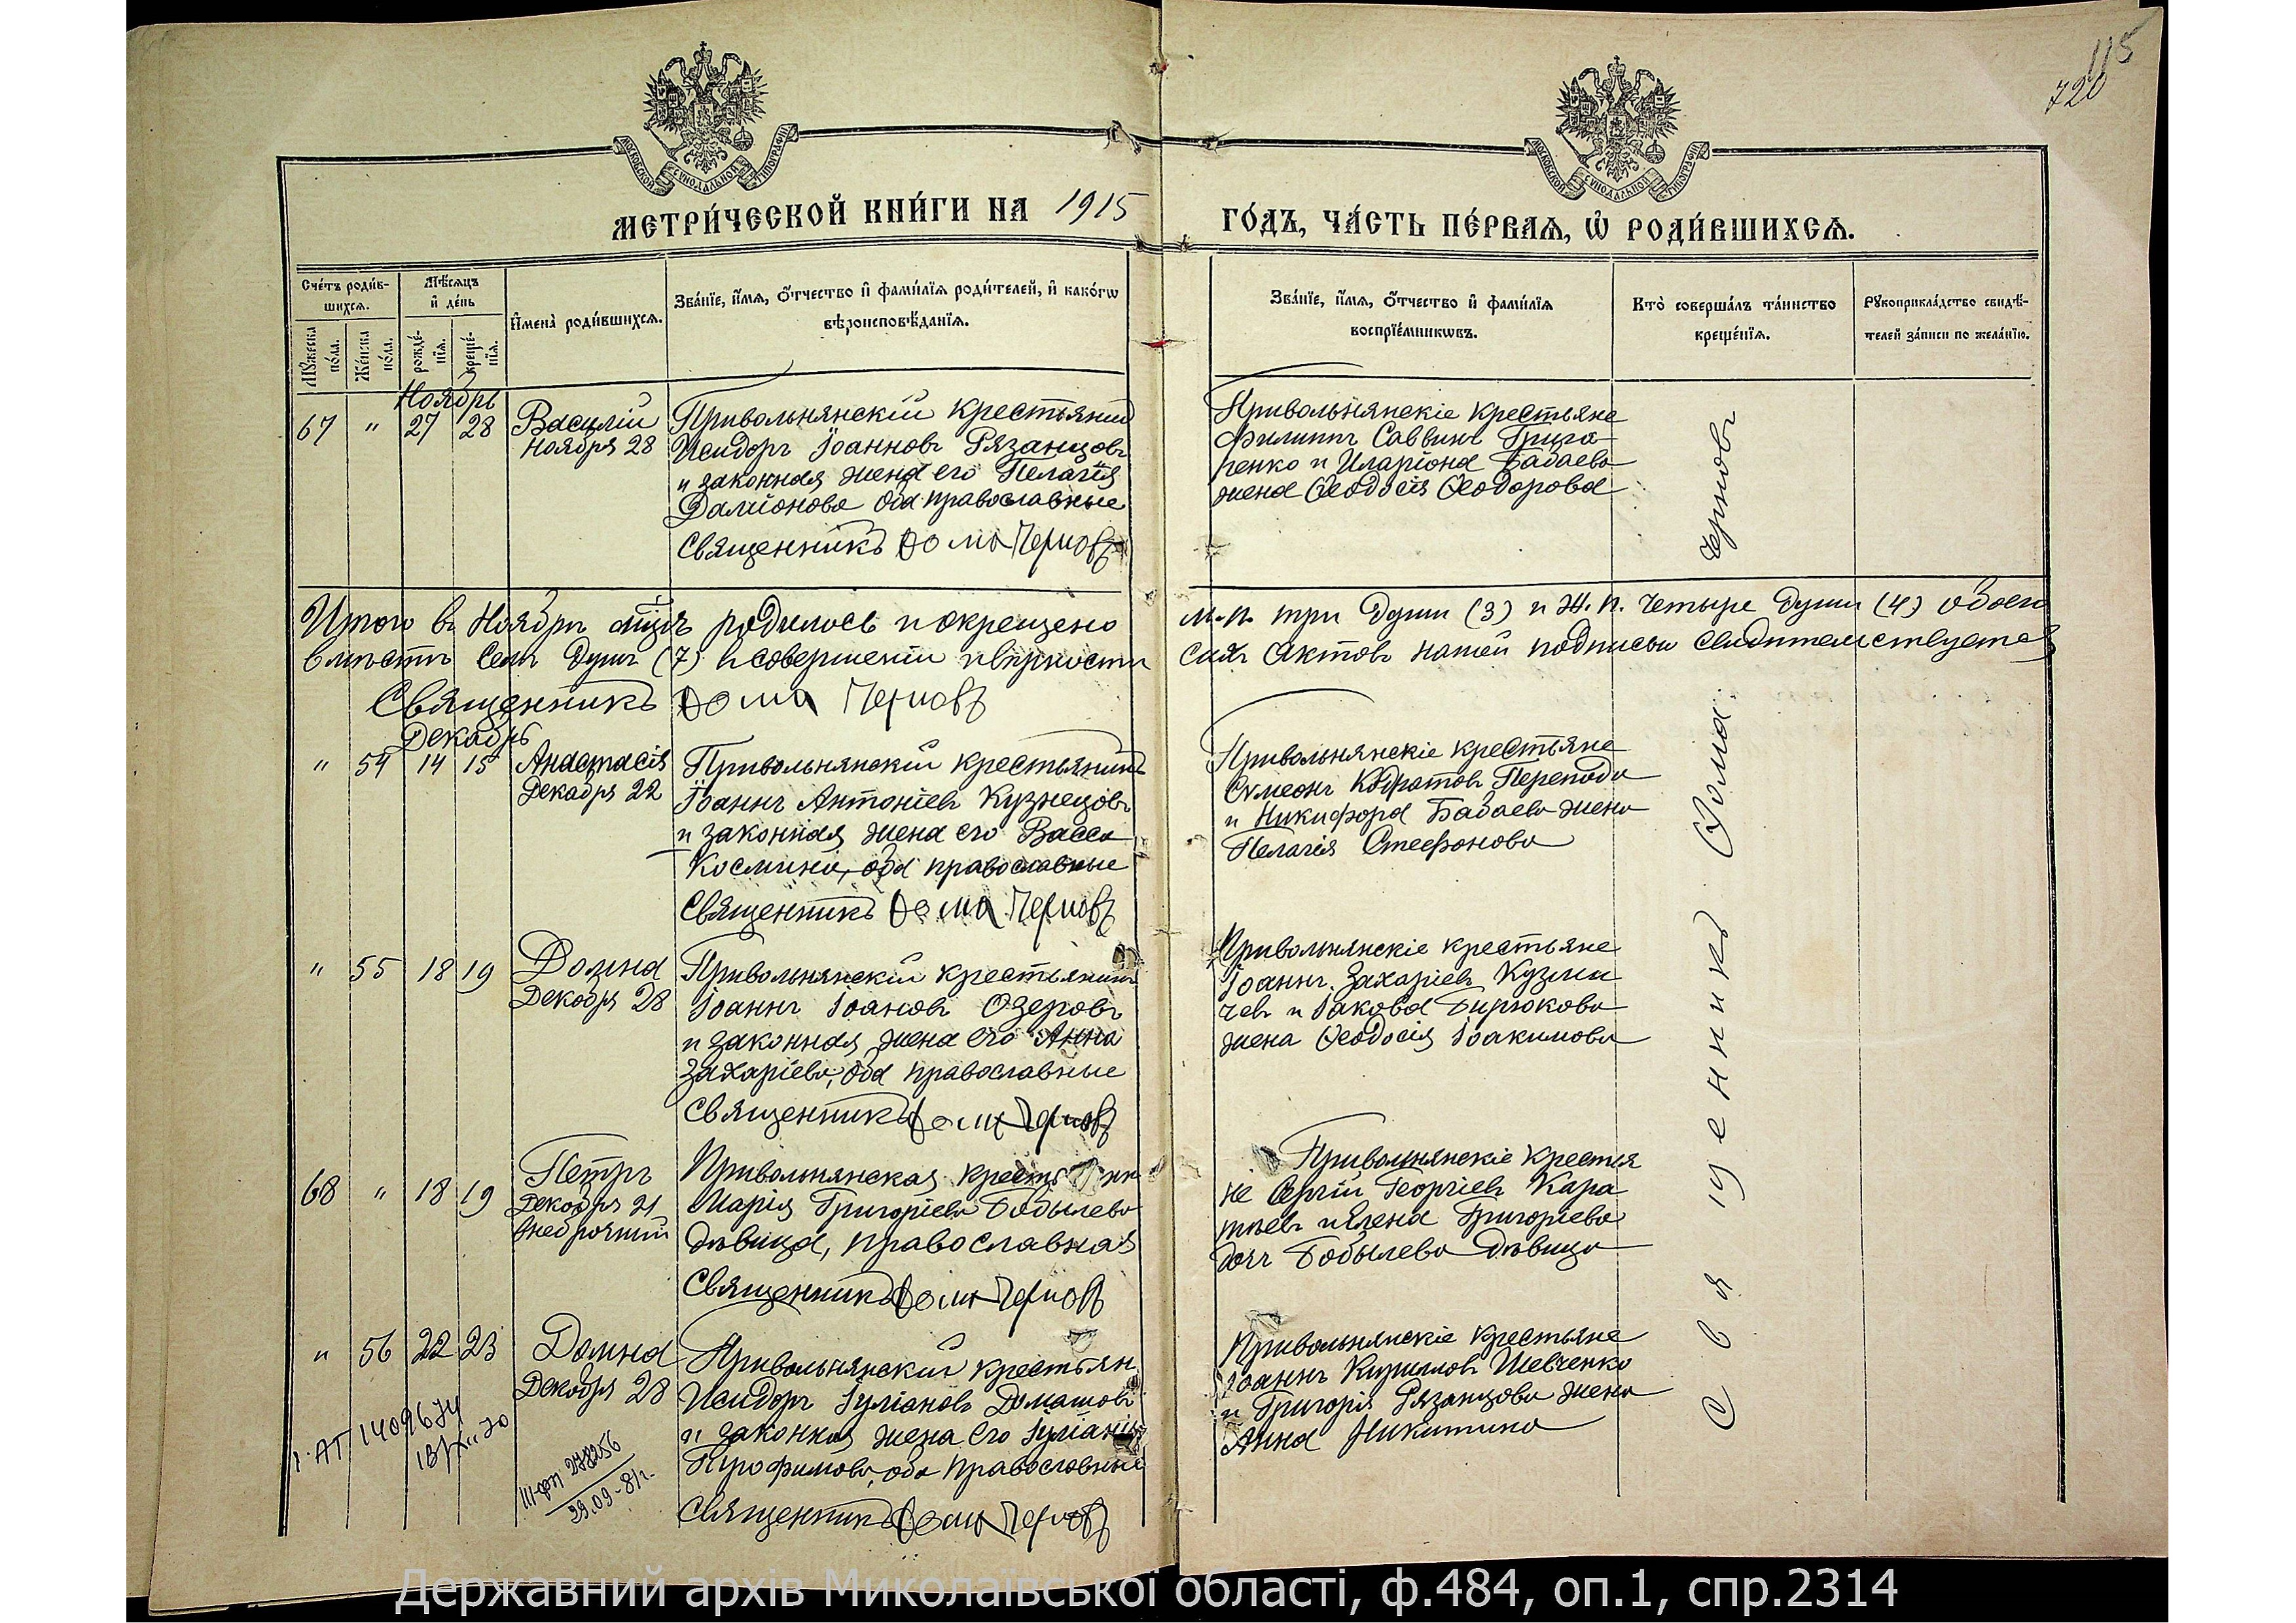 115
720
МОСКОВСКОЙ СУНОДАЛЬНОЙ ТИПОГРАФІИ
МОСКОВСКОЙ СУНОДАЛЬНОЙ ТИПОГРАФІИ
МЕТРИ́ЧЕСКОЙ КНИ́ГИ НА 1915 ГО́ДЪ, ЧА́СТЬ ПЕ́РВАѦ, Ѡ҆ РОДИ́ВШИХСѦ.
Сче́тъ роди́в-
шихсѧ.
Мꙋжеска по́ла.
Же́нска по́ла.
Мѣ́сѧцъ
и҆ де́нь
рожде́-
нїѧ.
креще́-
нїѧ.
И҆мена̀ роди́вшихсѧ.
Зва́нїе, и҆́мѧ, ѻ҆́тчество и҆ фамилїѧ роди́телей, и҆ како́гѡ
вѣроисповѣ́данїѧ.
Зва́нїе, и҆́мѧ, ѻ҆́тчество и҆ фами́лїѧ
воспрїе́мникѡвъ.
Кто̀ соверша́лъ та́инство
креще́нїѧ.
Рꙋкоприкла́дство свидѣ́-
телей за́писи по жела́нїю.
Ноябрь
67 " 27 28 Василій
Ноября 28
Привольнянскій крестьянинъ
Исидоръ Іоанновъ Рязанцовъ
и законная жена его Пелагія
Даміонова оба православные
Священникъ Ѳома Черновъ
Привольнянскіе крестьяне
Филиппъ Саввинъ
и Иларіона Бабаева
жена Ѳеодосія Ѳеодорова
Итого въ Ноябрѣ мцѣ родилось и окрещено м.п. три души (3) и ж.п. четыре души (4) обоего
вмѣстѣ семь душъ (7). въ совершеніи и вѣрности сихъ актовъ нашей подписью свидѣтельствуется
Священникъ Ѳома Черновъ
Декабрь
" 54 14 15 Анастасія
Декабря 22
Привольнянскій крестьянинъ
Іоаннъ Антоніевъ Кузнецовъ
и законная жена его Васса
Космина, оба православные
Священникъ Ѳома Черновъ
Привольнянскіе крестьяне
Сѵмеонъ
и Никифора Бабаева жена
Пелагія Стефанова
" 55 18 19 Домна
Декабря 28
Привольнянскій крестьянинъ
Іоаннъ Іоановъ Озеровъ
и законная жена его Анна
Захаріева, оба православные
Священникъ Ѳома Черновъ
Привольнянскіе крестьяне
Іоаннъ Захаріевъ Кузми
чевъ и Іакова Бирюкова
жена Ѳеодосія Іоакимова
68 " 18 19 Петръ
Декабря 21
внебрачный
Привольнянская
Марія Григоріева Бобылева
дѣвица, православная
Священникъ Ѳома Черновъ
Привольнянскіе крестья
не Сергій Георгіевъ Кара
и Елена Григоріева
дочь Бобылева дѣвица
" 56 22 23 Домна
Декабря 28
Привольнянскій крестьян
Исидоръ Іуліановъ Домашовъ
и законная жена его Іуліанія
Трофимова, оба православные
Священникъ Ѳома Черновъ
Привольнянскіе крестьяне
Іоаннъ Кирилловъ Шевченко
и Григорія Рязанцова жена
Анна Никитина
Священникъ Ѳома Черновъ
278256
29.09-81г.
Державний архів Миколаївської області, ф.484, оп.1, спр.2314